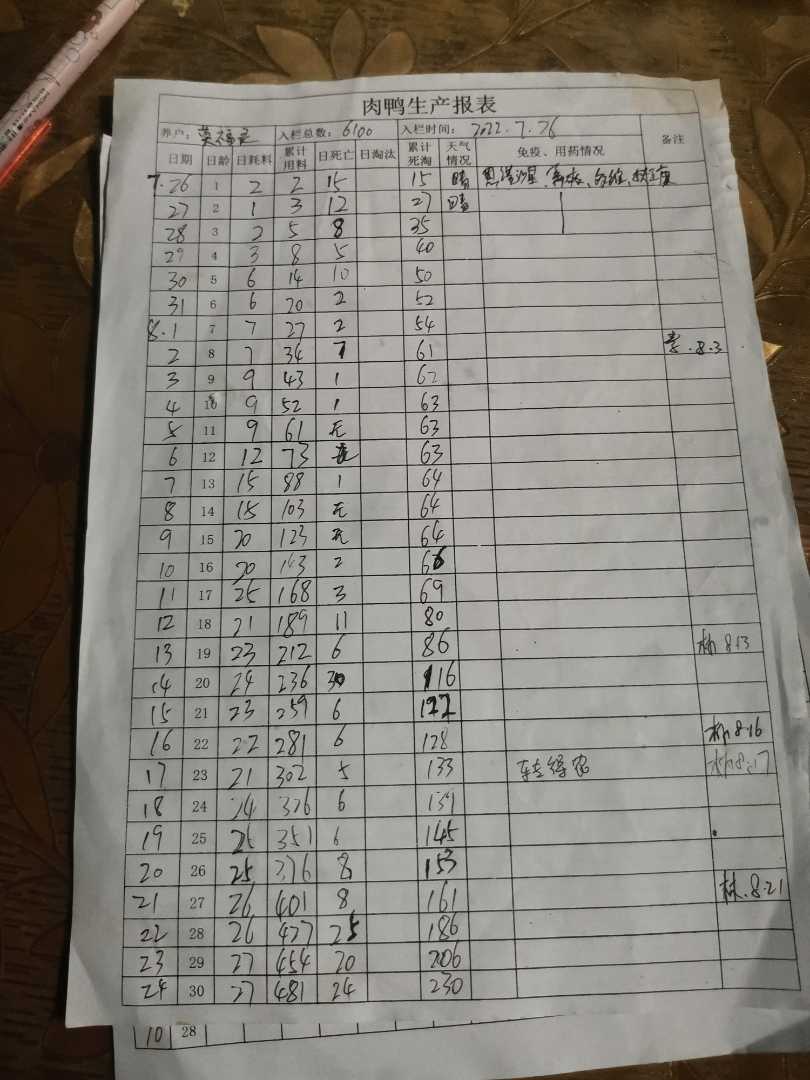 肉鸭生产报表
养户: 莫福 入栏总数: 6100 入栏时间: 2022.7.26 备注
日期 日龄 日耗料 累计用料 日死亡 日淘汰 累计死淘 天气情况 免疫、用药情况
7.26 1 2 2 15 15 晴
27 2 1 3 12 27 晴
28 3 2 5 8 35
29 4 3 8 5 40
30 5 6 14 10 50
31 6 6 20 2 52
8.1 7 7 27 2 54
2 8 7 34 7 61 8.3
3 9 9 43 1 62
4 10 9 52 1 63
5 11 9 61 无 63
6 12 12 73 无 63
7 13 15 88 1 64
8 14 15 103 无 64
9 15 20 123 无 64
10 16 20 143 2 66
11 17 25 168 3 69
12 18 21 189 11 80
13 19 23 212 6 86 8.13
14 20 24 236 30 116
15 21 23 259 6 122
16 22 22 281 6 128 8.16
17 23 21 302 5 133 8.17
18 24 24 326 6 139
19 25 25 351 6 145
20 26 25 376 8 153
21 27 26 401 8 161 林.8.21
22 28 26 427 25 186
23 29 27 454 20 206
24 30 27 481 24 230
10 28